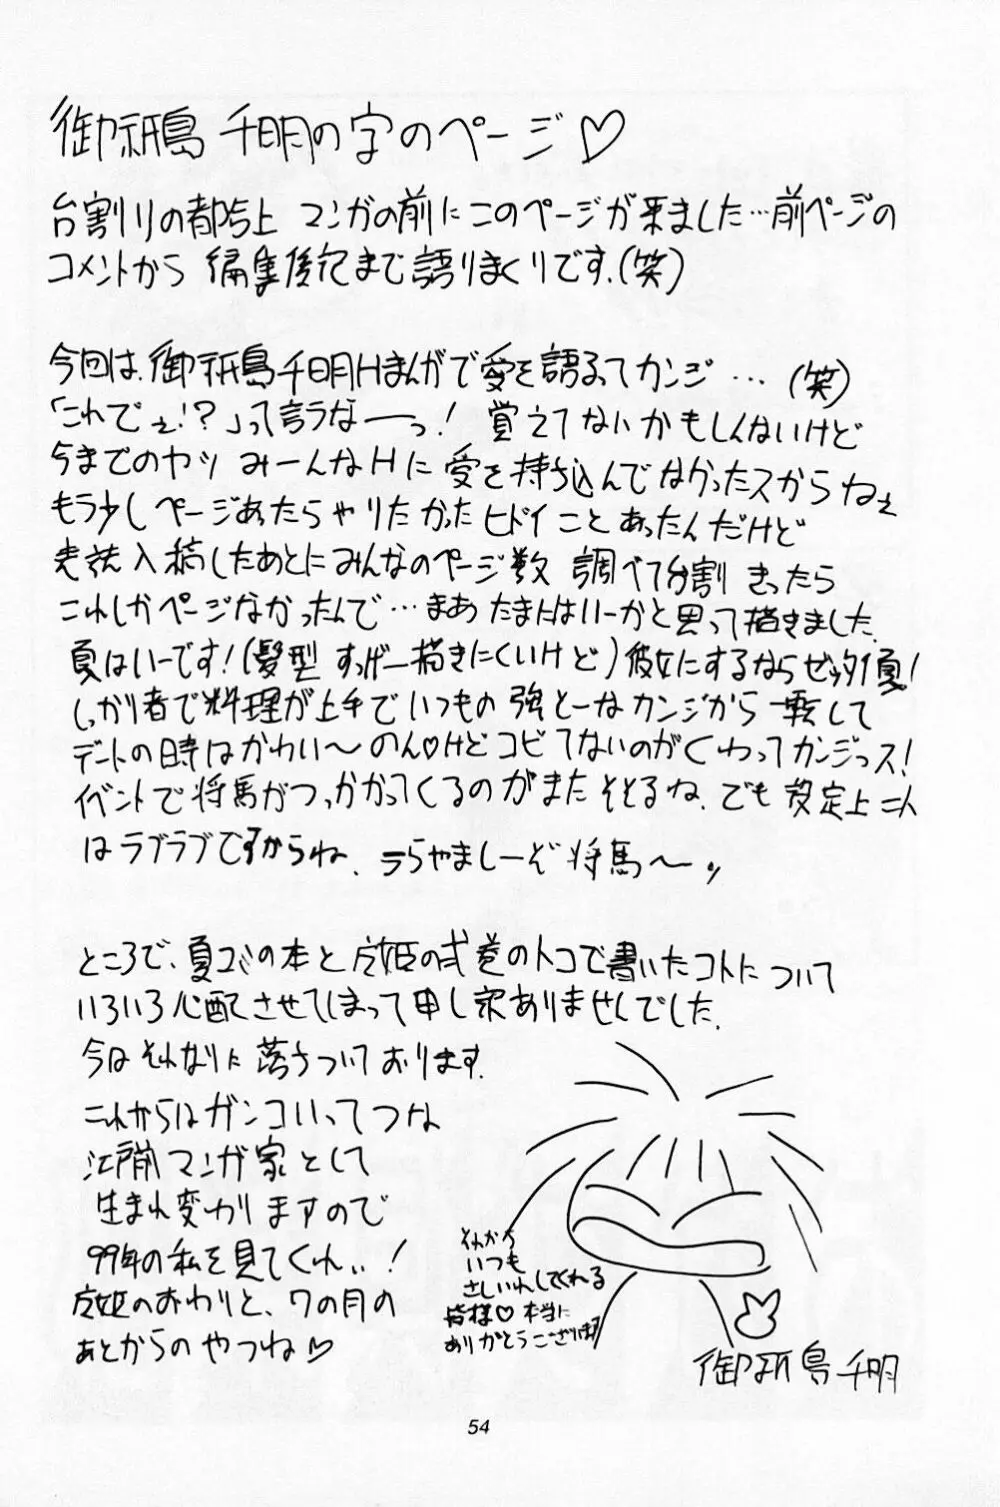 御祇島 千明の字のページ♡
台割りの都合上 マンガの前にこのページが来ました…前ページの
コメントから 編集後記まで語りまくりです.(笑)
今回は、御祇島千明Hまんがで愛を語るってカンジ…(笑)
「これでぇ!?」って言うなーっ! 覚えてないかもしんないけど
今までのヤツ みーんなHに愛を持ち込んでなかったスからねぇ
もう少しページあったらやりたかったヒドイことあったんだけど
表紙入稿したあとにみんなのページ数 調べて台割きったら
これしかページなかったんで…まあたまにはいーかと思って描きました.
夏はいーです!(髪型 すっげー描きにくいけど)彼女にするならゼッタイ夏!
しっかり者で料理が上手でいつもの 強とーなカンジから一転して
デートの時はかわい〜のん♡けどコビてないのがくわってカンジっス!
イベントで将馬がつっかかってくるのがまたそそるね.でも設定上二人
はラブラブですからね. うらやましーぞ将馬〜ッ
ところで、夏コミの本と 姫の弐巻のトコで書いたコトについて
いろいろ心配させてしまって申し訳ありませんでした.
今はそれなりに落ちついております.
これからはガンコいってつな
江戸前マンガ家として
生まれ変わりますので
99年の私を見てくれぃ!
姫のおわりと、7の月の
あとからのやつね♡
それから
いつも
さしいれしてくれる
皆様♡本当に
ありがとうございます
御祇島千明
54